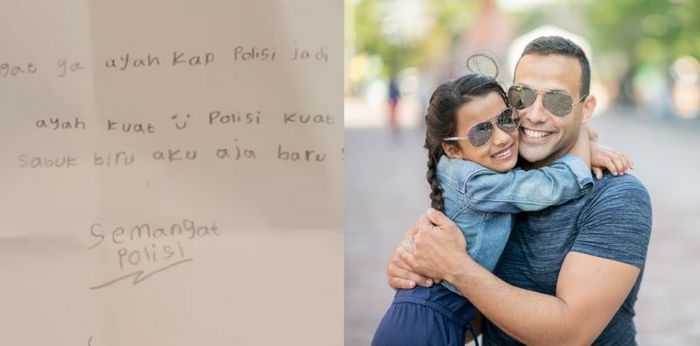 ya ayah kap Polisi jadi
ayah kuat Polisi kuat
sabuk biru aku aja baru
Semangat
Polisi